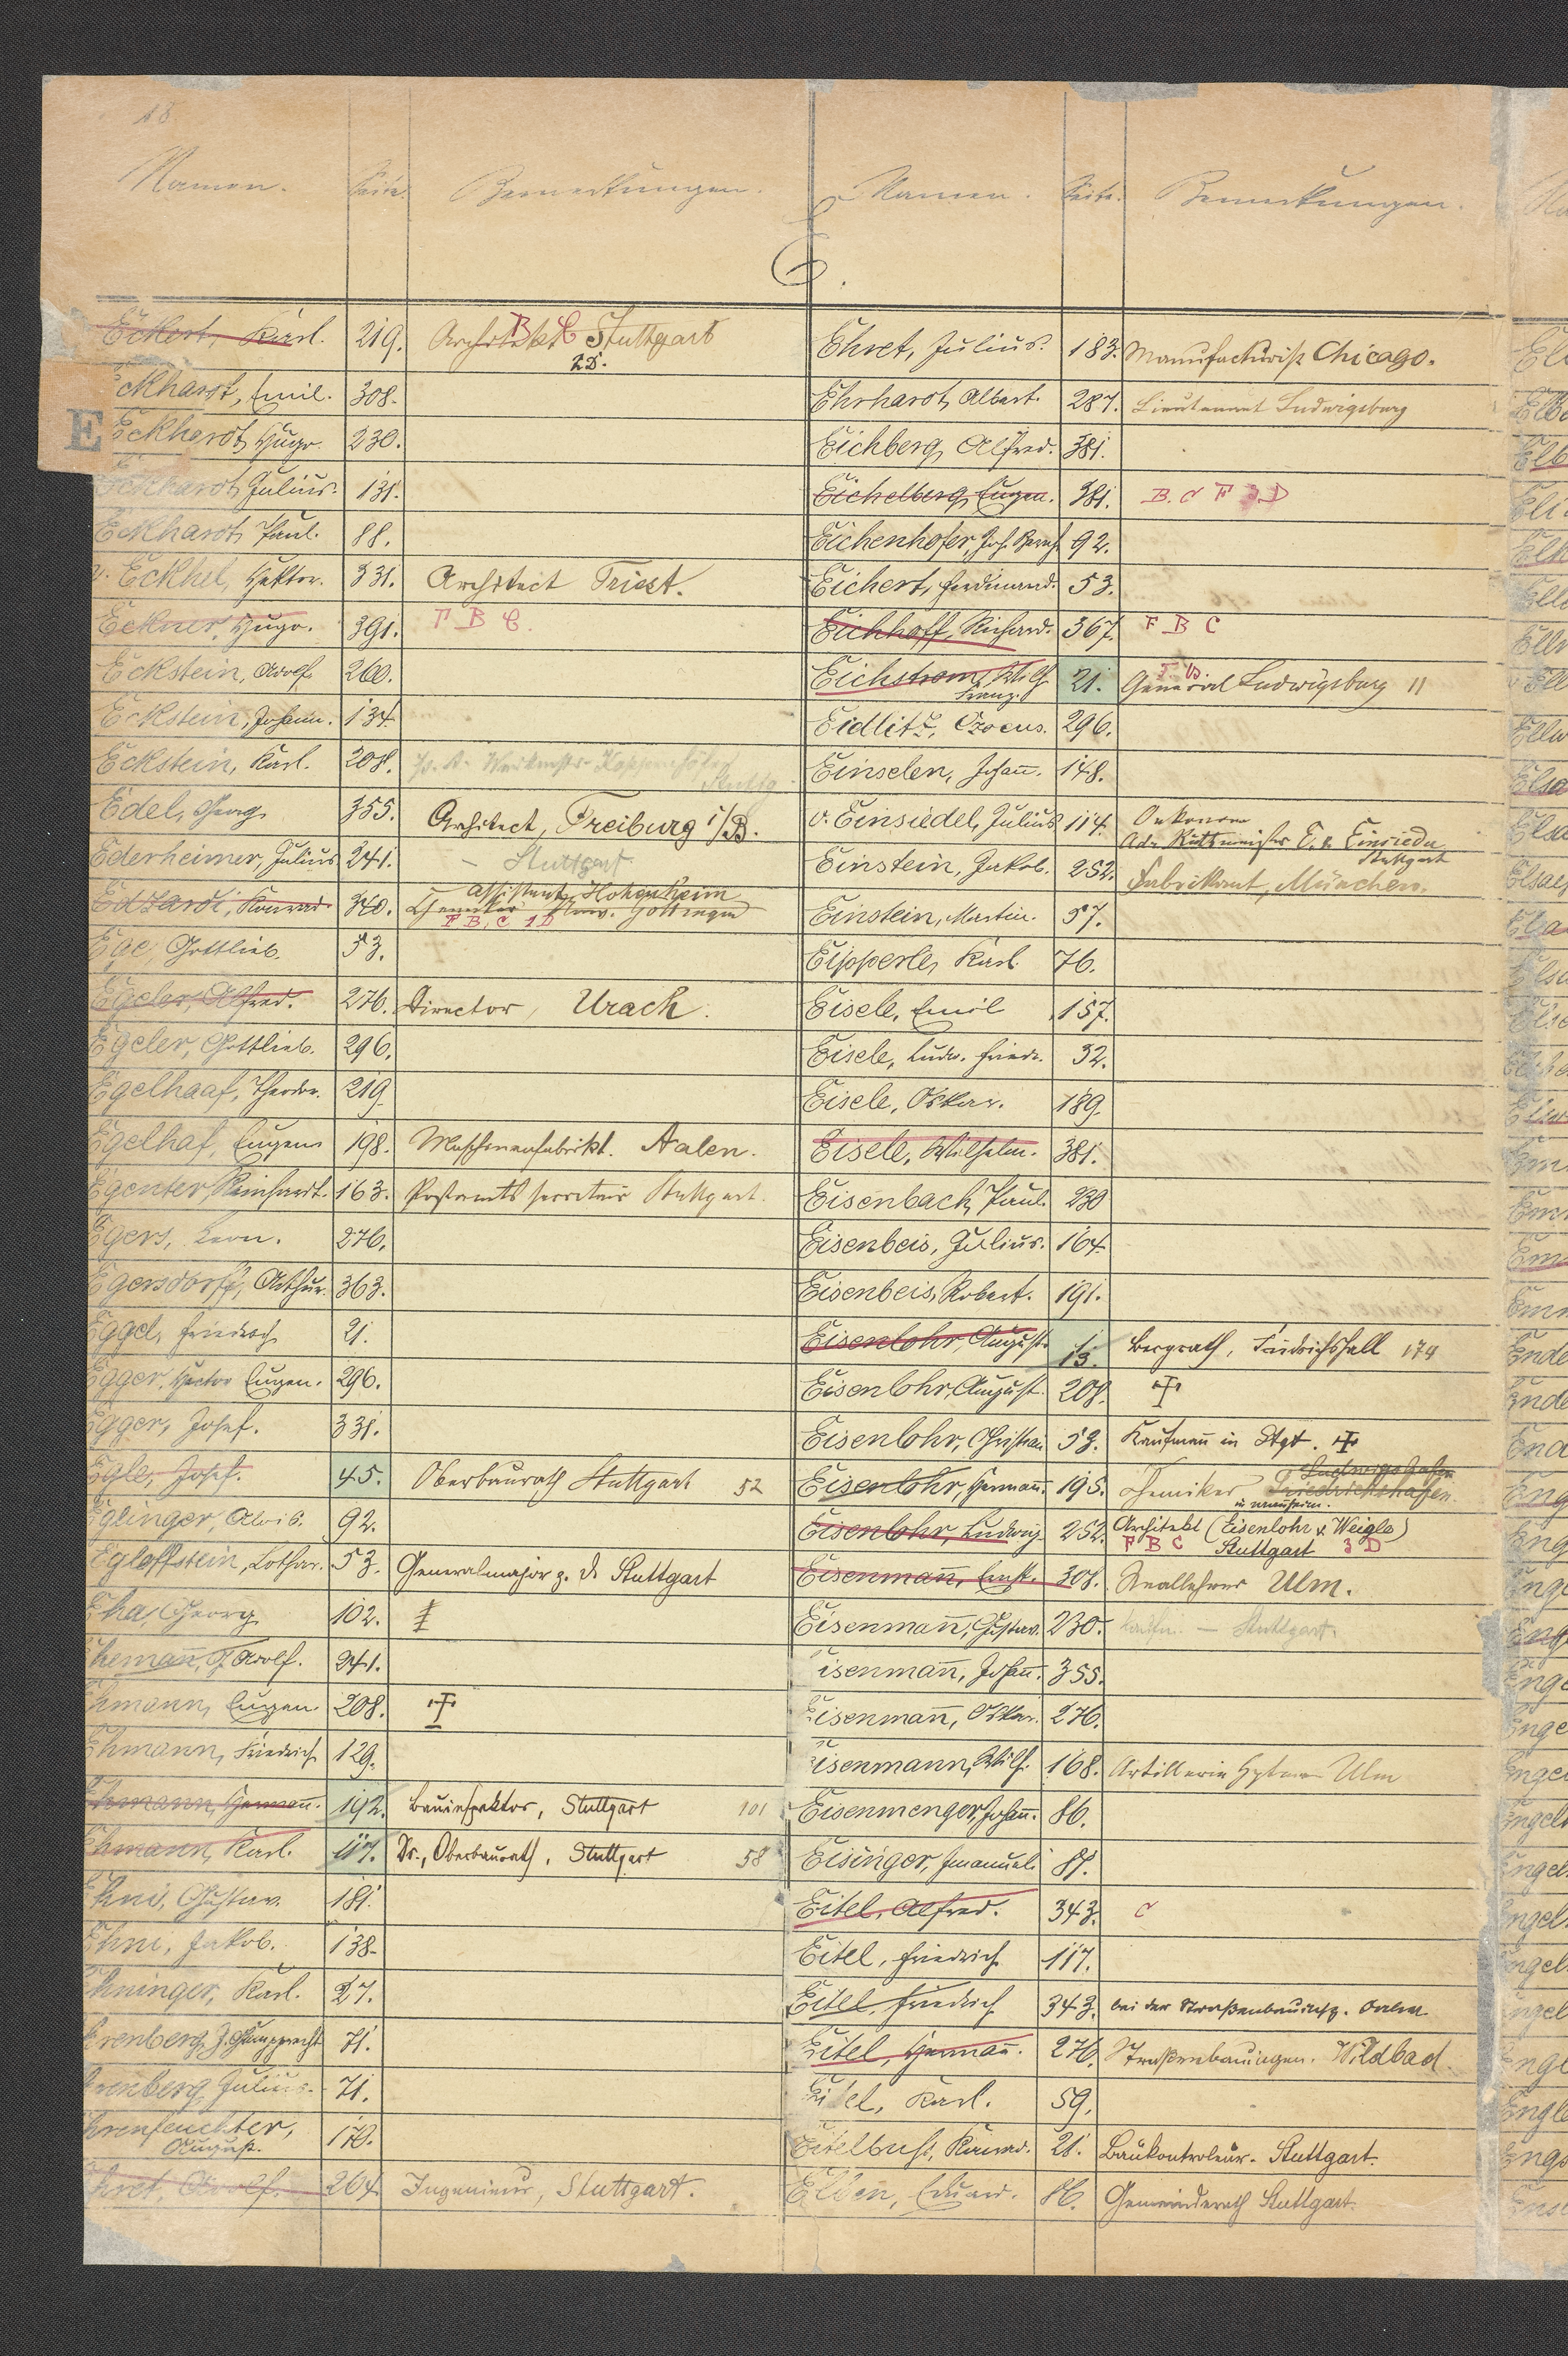 18
Namen. Seite. Bemerkungen.
E.
E
Eckert, Karl. 219. Architekt Stuttgart
B C
2D.
Eckhardt, Emil. 308.
Eckhardt, Hugo. 230.
Eckhardt, Julius. 131.
Eckhardt, Paul. 88.
v. Eckhel, Hektor. 331. Architect Triest.
Eckner, Hugo. 391. F B C
Eckstein, Adolf. 260.
Eckstein, Johann. 134.
Eckstein, Karl. 208.
Stuttg.
Edel, Georg 355. Architect, Freiburg i/B.
Ederheimer, Julius 241. – Stuttgart
Edzardi, Konrad. 340. Assistent, Hohenheim
Chemiker Univ. Göttingen
F B, C 1D
Ege, Gottlieb. 53.
Egeler, Alfred. 276. Director, Urach.
Egeler, Gottlieb. 296.
Egelhaaf, Theodor. 219.
Egelhaf, Eugen 198. Maschinenfabrikt. Aalen.
Egenter, Reinhardt. 163. Postamts secretair Stuttgart.
Egers, Leon. 276.
Egersdorff, Arthur. 363.
Eggel, Friedrich 21.
Egger, Hector Eugen. 296.
Egger, Josef. 331.
Egle, Josef. 45. Oberbaurath Stuttgart 52
Eglinger, Alois. 92.
Egloffstein, Lothar. 53. Generalmajor z. D. Stuttgart
Eha, Georg 102. ‡
Ehemann, F. Adolf. 241.
Ehmann, Eugen 208. †
Ehmann, Friedrich 129.
Ehmann, Hermann. 192. Bauinspektor, Stuttgart 101
Ehmann, Karl. 117. Dr., Oberbaurath, Stuttgart 58
Ehni, Gustav. 181.
Ehni, Jakob. 138.
Ehninger, Karl. 27.
Ehrenberg, J. Gumpprecht 71.
Ehrenberg, Julius. 71.
Ehrenfeuchter,
August. 170.
Ehret, Adolf. 264. Ingenieur, Stuttgart.
Namen. Seite. Bemerkungen.
Ehret, Julius. 183. Manufacturist Chicago.
Ehrhardt, Albert. 287. Lieutenant Ludwigsburg
Eichberg, Alfred. 381.
Eichelberg, Eugen. 381. B. C F 3.D
Eichenhofer, Joh. Bernh. 92.
Eichert, Ferdinand. 53.
Eichhoff, Richard. 367. F B C
Eichstrom, Wilh.
Franz. 21. General Ludwigsburg 11
Eidlitz, 296.
Einselen, Johann. 148.
v. Einsiedel, Julius 114. Oekonom
Adr. Rittmeister E. v. Einsiedel
Stuttgart
Einstein, Jakob. 252. Fabrikant, München.
Einstein, Martin. 57.
Eipperle, Karl. 76.
Eisele, Emil 157.
Eisele, Ludw. Friedr. 32.
Eisele, Oskar. 189.
Eisele, Wilhelm. 381.
Eisenbach, Paul. 230
Eisenbeis, Julius. 164.
Eisenbeis, Robert. 191.
Eisenlohr, August. 13. Bergrath, Friedrichshall 174
Eisenlohr, August. 208. †
Eisenlohr, Christian 53. Kaufmann in Stgt. †
Eisenlohr, Hermann. 195. Chemiker Friedrichshafen.
Ludwigshafen
Eisenlohr, Ludwig. 252. Architekt (Eisenlohr v. Weigle)
F B C Stuttgart 3 D
Eisenmann, Ernst. 308. Reallehrer Ulm.
Eisenmann, Gustav. 230. Kaufm. – Stuttgart.
Eisenmann, Johann. 355.
Eisenmann, Oskar. 276.
Eisenmann, Wilh. 168. Artillerie Hptm. Ulm
Eisenmenger, Johann. 86.
Eisinger, Imanuel. 87.
Eitel, Alfred. 343. C
Eitel, Friedrich. 117.
Eitel, Friedrich 343. bei der Straßenbauinsp. Aalen
Eitel, Hermann. 276. Straßenbauingen. Wildbad.
Eitel, Karl. 59.
Eitelbuß, Konrad. 21. Baukontroleur. Stuttgart.
Elben, Eduard. 86. Gemeinderath Stuttgart.